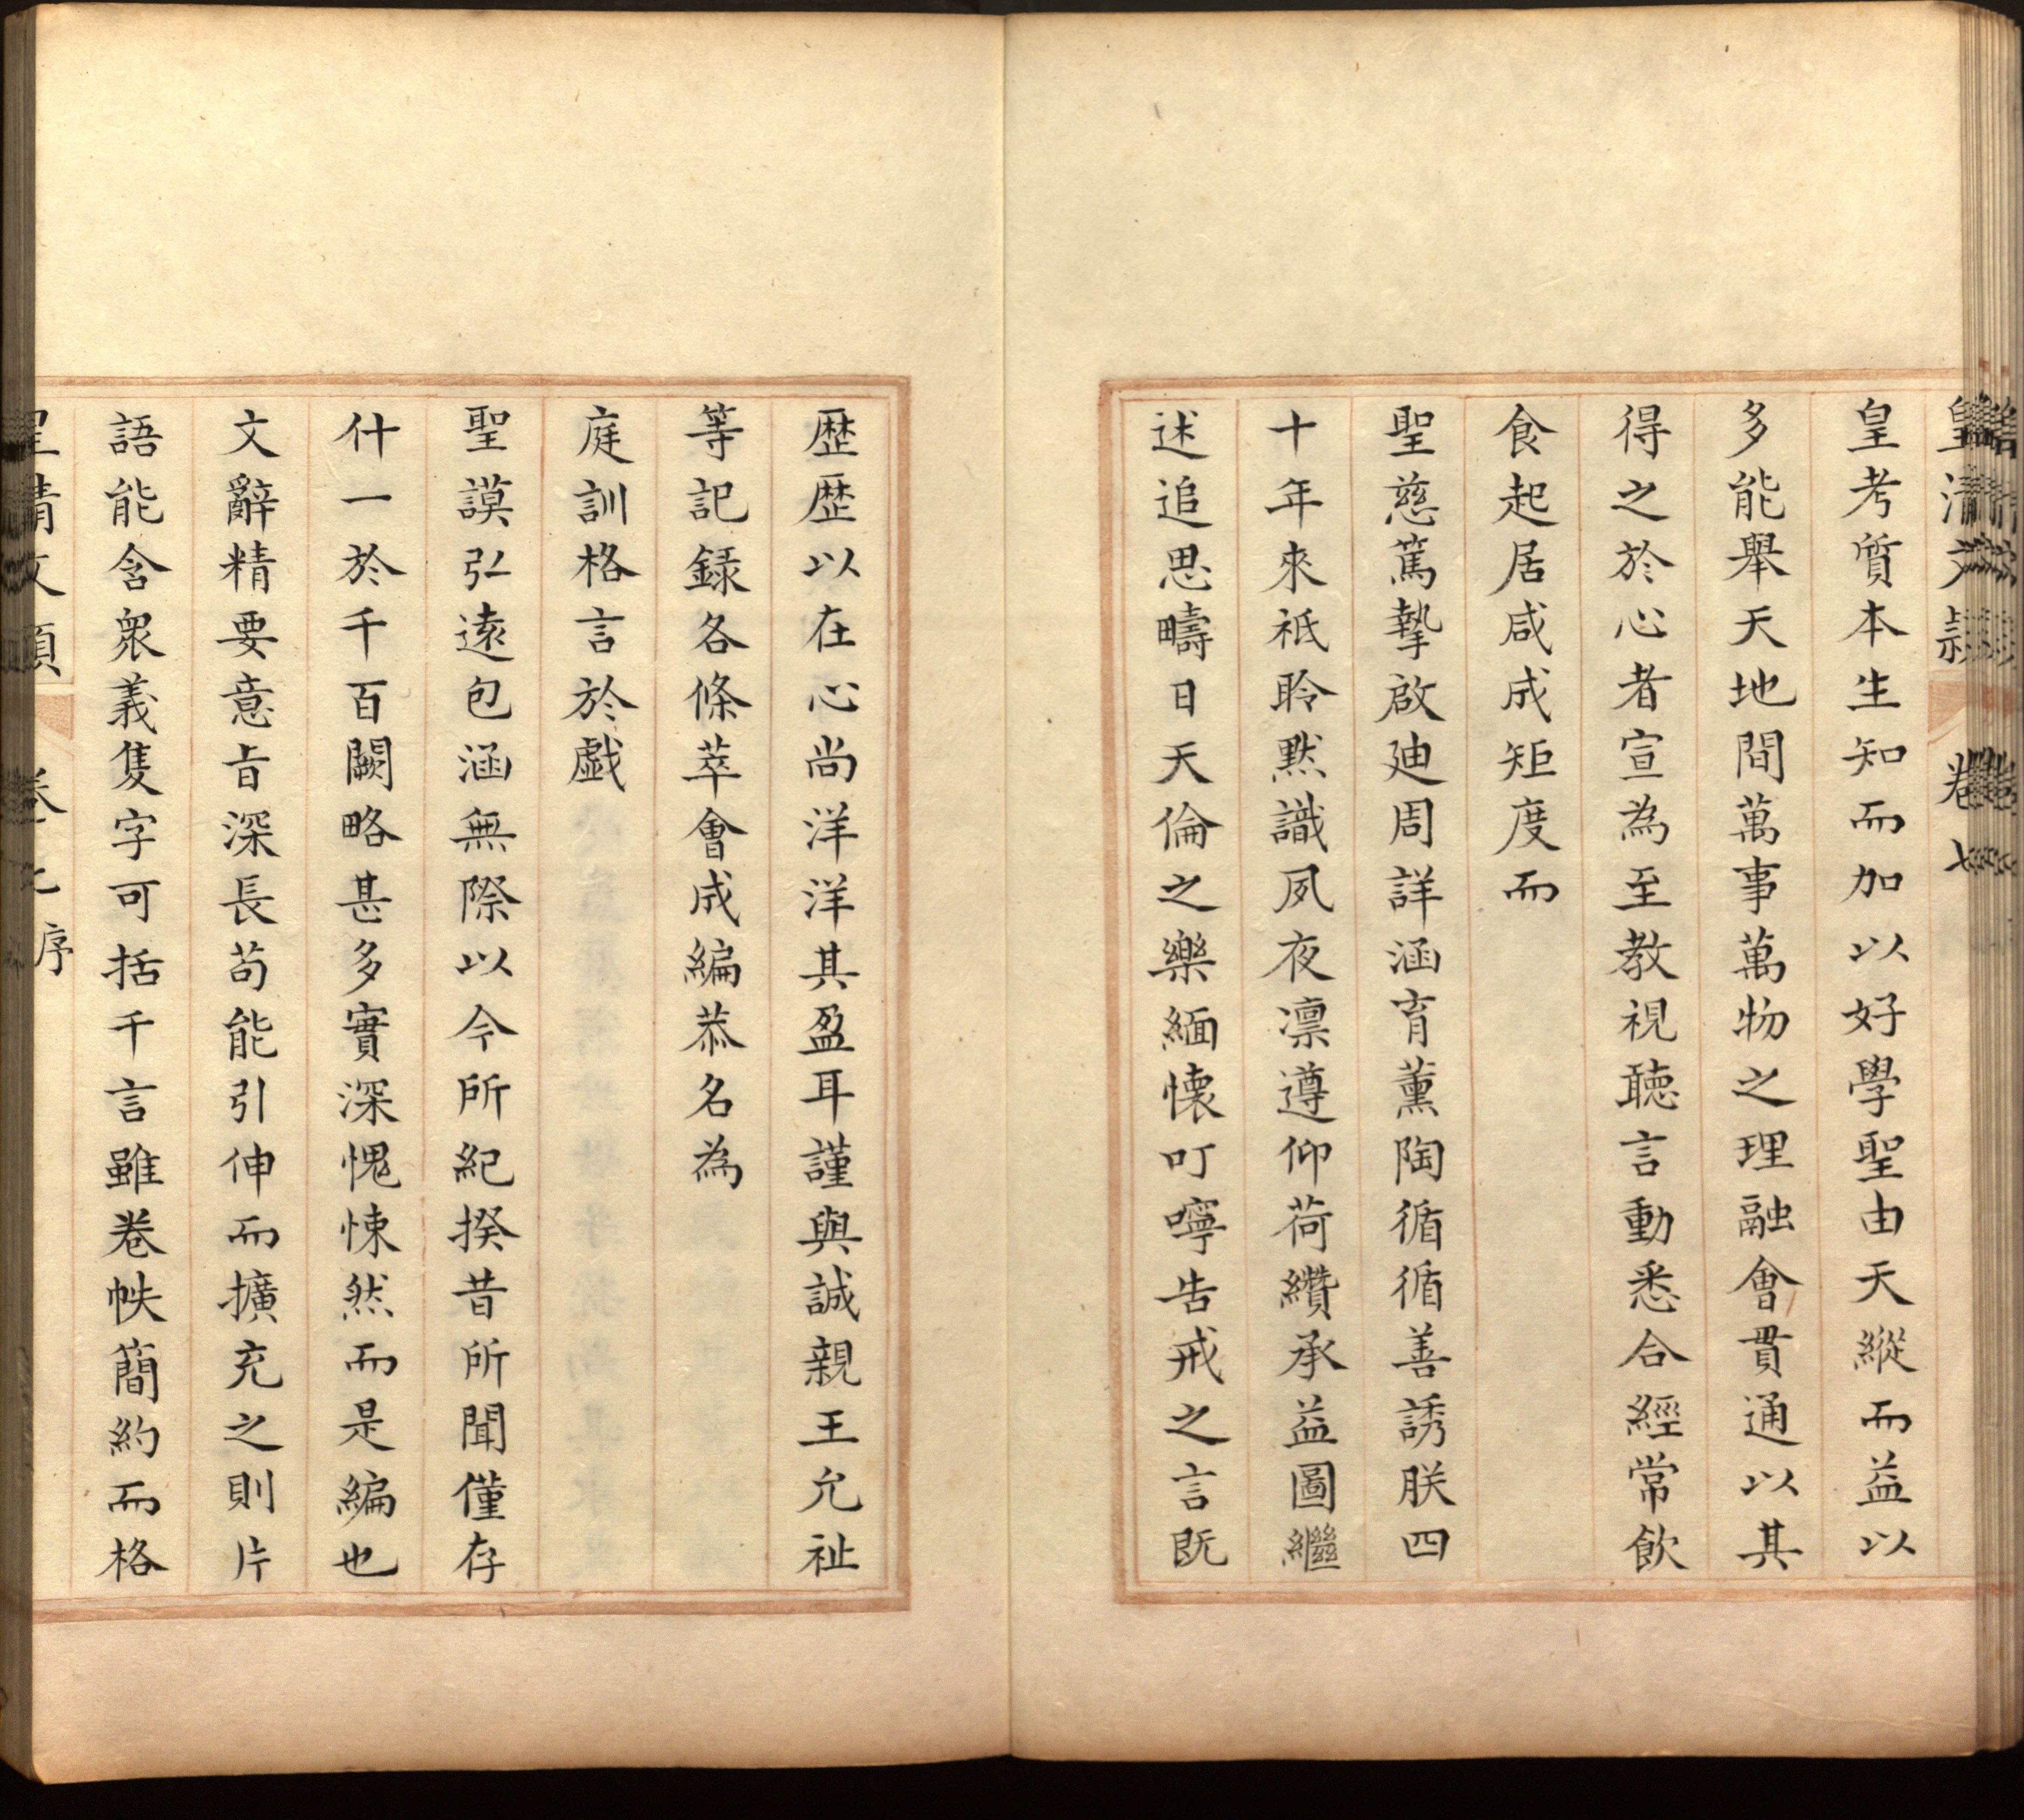 皇清文穎 卷七
皇考質本生知而加以好學聖由天縱而益以
多能舉天地間萬事萬物之理融會貫通以其
得之於心者宣為至教視聽言動悉合經常飲
食起居咸成矩度而
聖慈篤摯啟廸周詳涵育薰陶循循善誘朕四
十年來祇聆黙識夙夜凛遵仰荷纘承益圖繼
述追思疇日天倫之樂緬懷叮嚀告戒之言既
歴歴以在心尚洋洋其盈耳謹與誠親王允祉
等記録各條萃會成編恭名為
庭訓格言於戯
聖謨弘逺包涵無際以今所紀揆昔所聞僅存
什一於千百闕略甚多實深愧悚然而是編也
文辭精要意㫖深長苟能引伸而擴充之則片
語能含衆義隻字可括千言雖卷帙簡約而格
皇清文穎 卷七 序